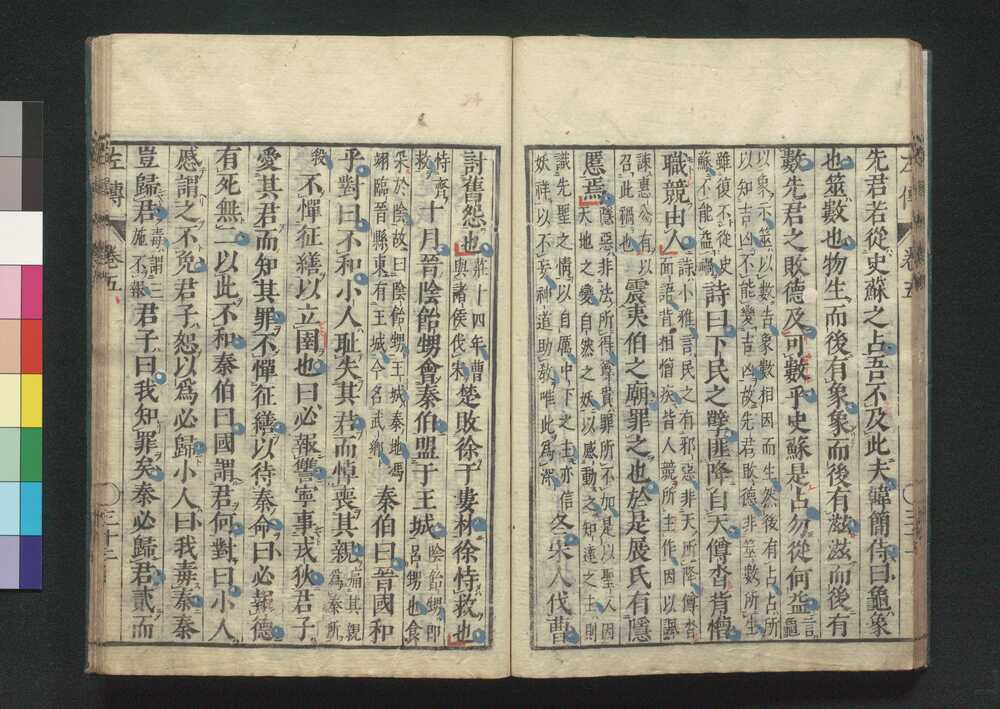 先君若從史蘇之占吾不及此夫韓簡侍曰龜象
也筮數也物生而後有象象而後有滋滋而後有
數先君之敗德及可數乎史蘇是占勿從何益言
龜
以象示筮以數告象數相因而生然後有占占所
以知吉凶不能變吉凶故先君敗德非筮數所生
雖復不從史
蘇不能益禍
詩曰下民之孽匪降自天僔沓背憎
職競由人
詩小雅言民之有邪惡非天所降僔沓
面語背相憎疾皆人競所主作因以諷
諫惠公有以
召此禍也
震夷伯之廟罪之也於是展氏有隱
慝焉
隱惡非法所得尊貴罪所不加是以聖人因
天地之變自然之妖以感動之知達之主則
識先聖之情以自厲中下之主亦信
妖祥以不妄神道助教唯此爲深
冬宋人伐曹
討舊怨也
莊十四年曹
與諸侯伐宋
楚敗徐于婁林徐恃救也
恃齊
救
十月晉陰飴甥會秦伯盟于王城
陰飴甥即
呂甥也食
采於陰故曰陰飴甥王城秦地馮
翊臨晉縣東有王城今名武鄉
秦伯曰晉國和
乎對曰不和小人恥失其君而悼喪其親
痛其親
爲秦所
殺
不憚征繕以立圉也曰必報讎寧事戎狄君子
愛其君而知其罪不憚征繕以待秦命曰必報德
有死無二以此不和秦伯曰國謂君何對曰小人
慼謂之不免君子恕以爲必歸小人曰我毒秦秦
豈歸君
毒謂三
施不報
君子曰我知罪矣秦必歸君貳而
左傳 卷五